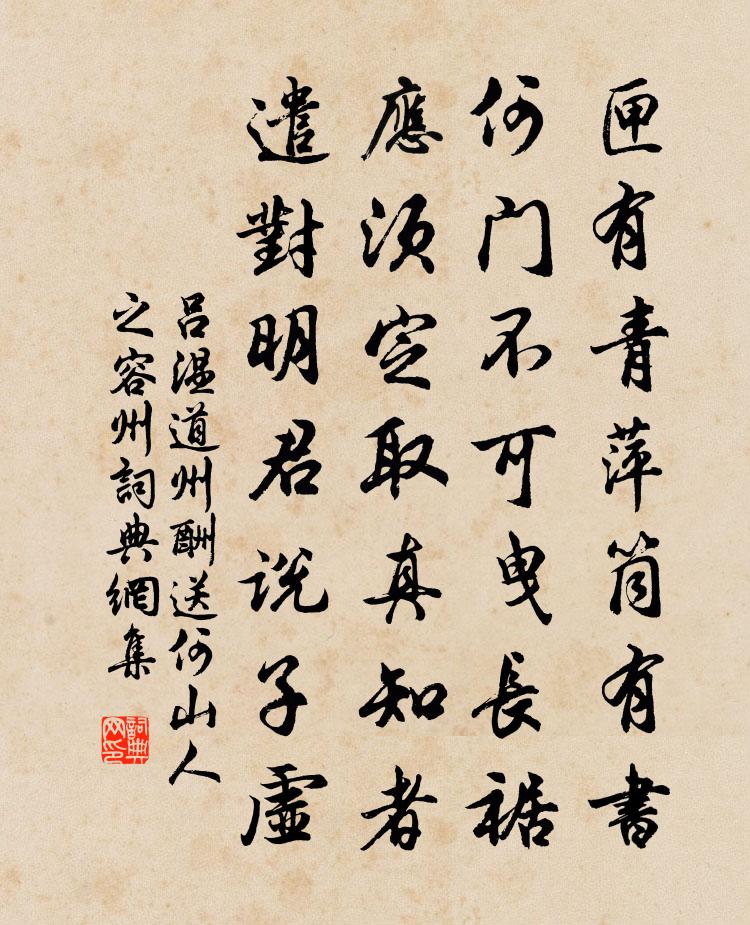 匣有青萍筒有書
何门不可曳長裾
應須定取真知者
遣對明君说子虛
吕温道州酬送何山人
之容州詞典網集
詞典网印